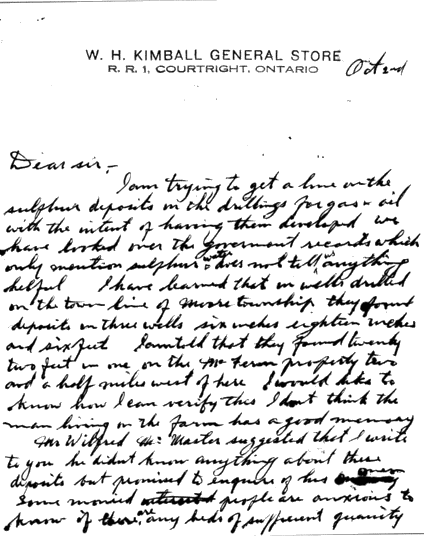 W. H. KIMBALL GENERAL STORE
R. R. 1, COURTRIGHT, ONTARIO
Oct 2nd
Dear sir,-
I am trying to get a line on the
sulphur deposits in the drillings for gas & oil
with the intent of having them developed we
have looked over the goverment records which
only mention sulphur water does not tell us anything
helpful I have learned that in wells drilled
on the town line of Moore township they found
deposits in three wells six inches eighteen inches
and six feet I am told that they found twenty
two feet in one on the property two
and a half miles west of here I would like to
know how I can verify this I dont think the
man living on the farm has a good memory
Mr Wilfred Mc Master suggested that I write
to you he didnt know anything about these
deposits but promised to enquire of his
Some monied people are anxious to
know if there are any beds of sufficient quantity